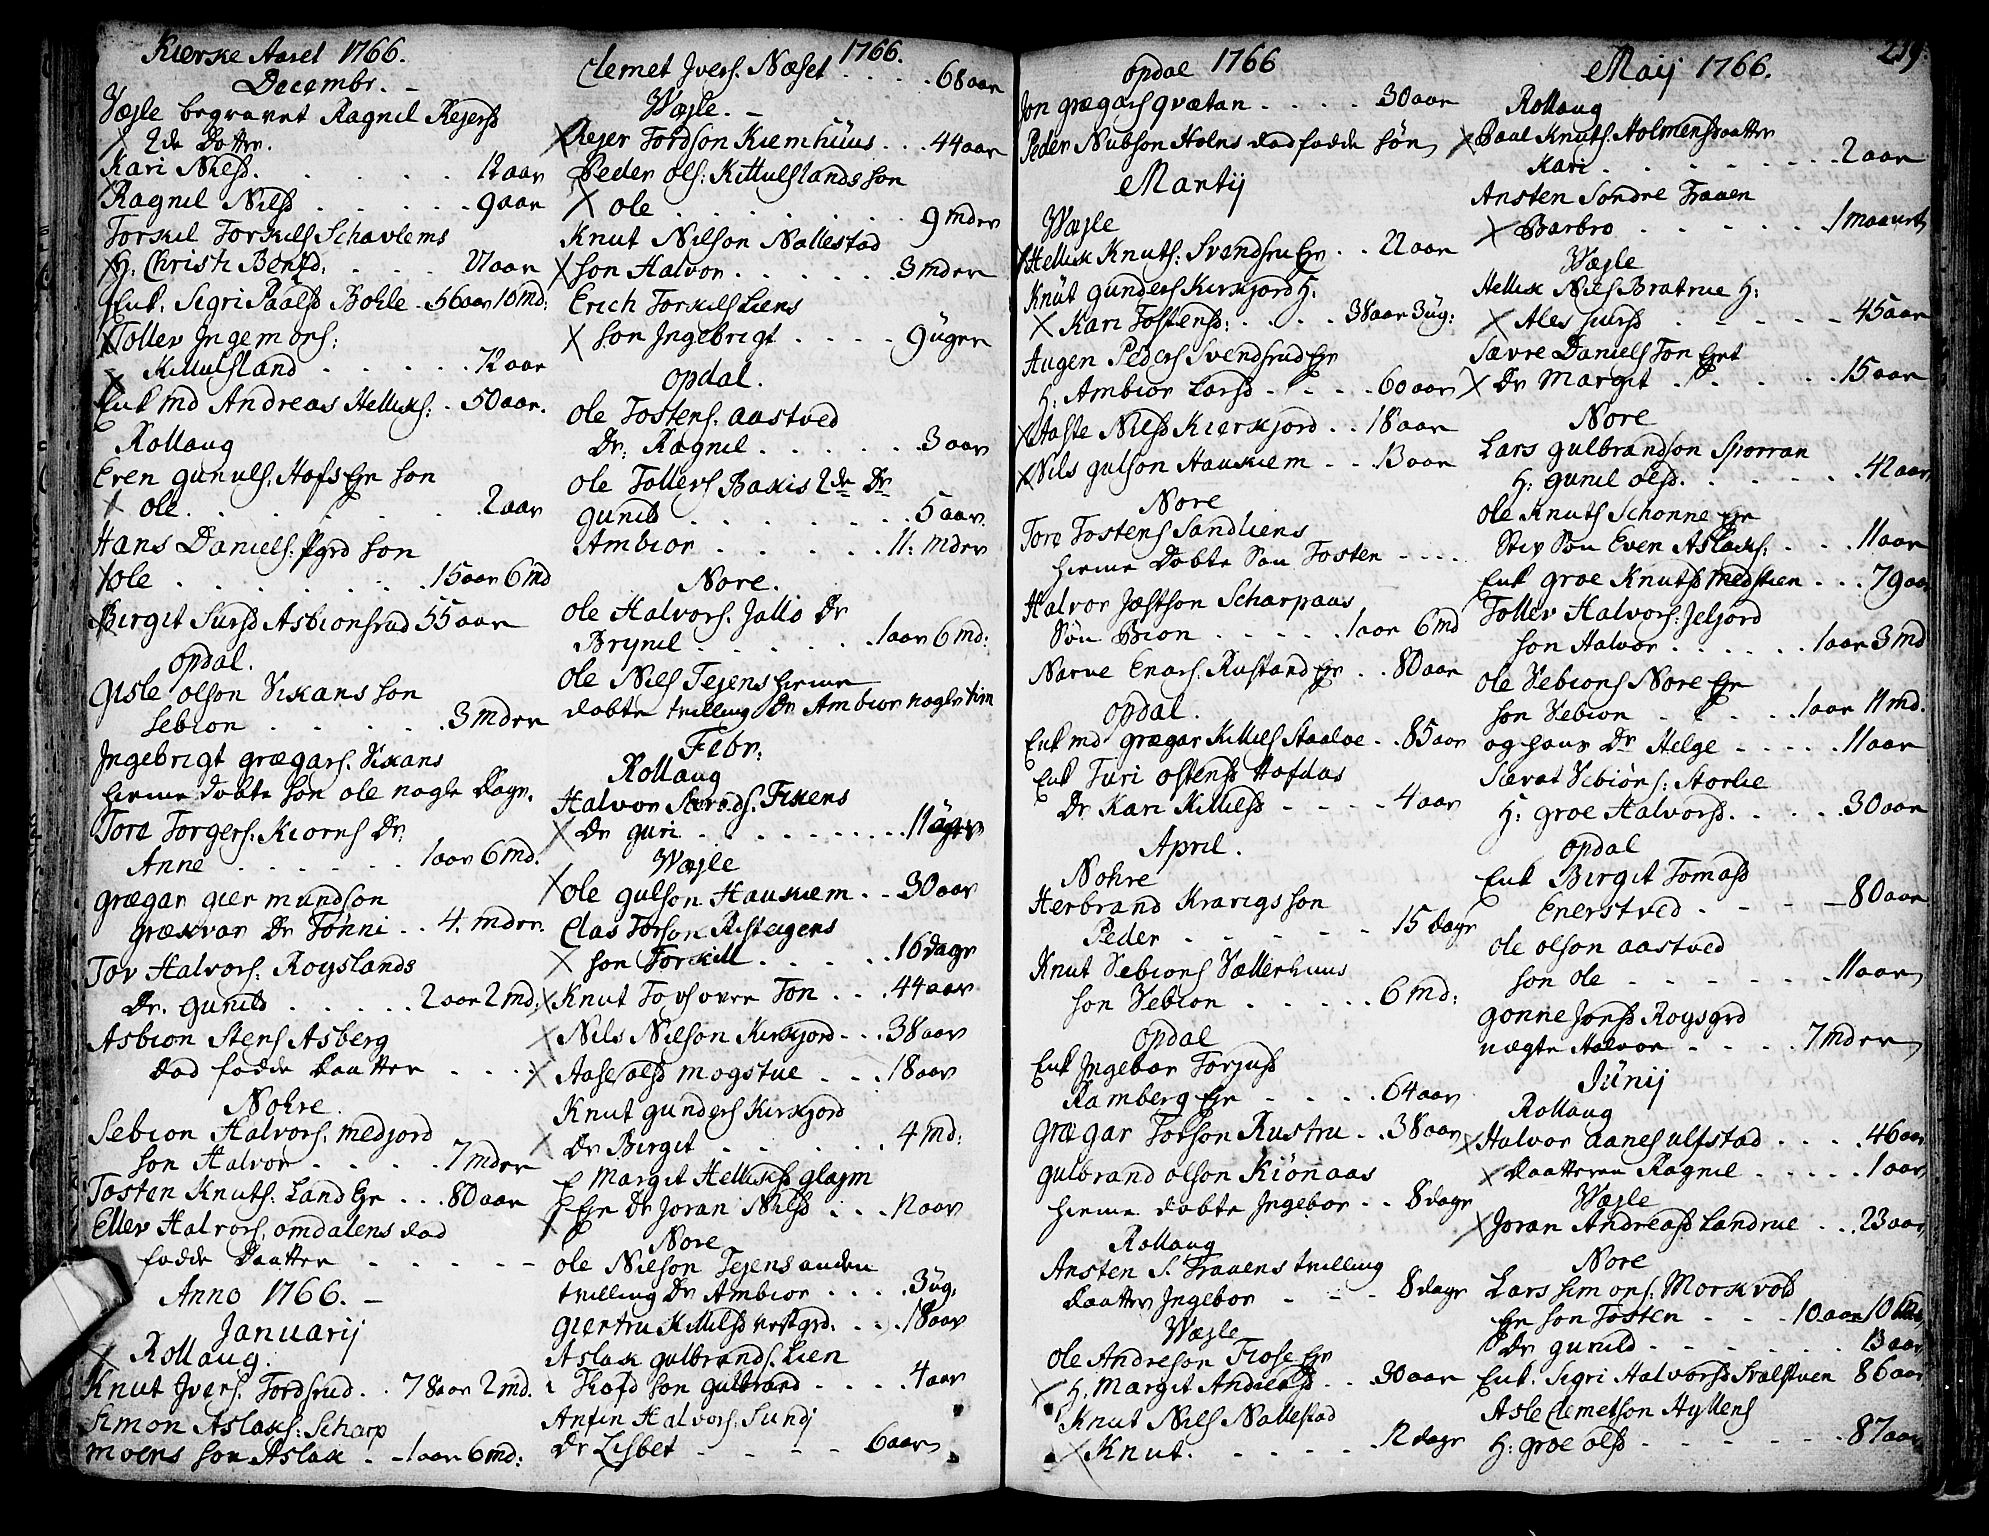 Kierke Aaret 1766.
Decembr.
Wæjle begravet Ragnil Rejersd
2de Dotter.
Kari Nilsd. 12 aar
Ragnil Nilsd 9 aar
Torkil Torkils Schavlems
H: Christi Bensd: 21 aar
Enk: Sigri Paalsd Bohle 56 aar 10 md:
Tollev Ingemons:
Kittulsland 72 aar
Enk md Andreas Helliks: 50 aar.
Rollaug
Even Gunuls: Hafs Egr Son
Ole 2 aar
Hans Daniels: Pgrd Son
Ole 15 aar 6 md
Birgit Sursd Asbionsrud 55 aar
Opdal.
Gisle Olson Vikans Son
Sebion 3 mdrr
Ingebrigt Grægars: Vikans
hieme dobte Son Ole nogle Dagr.
Tore Torgers: Kiorns Dr:
Anne 1 aar 6 md.
Grægar Giermundson
Grækvar Dr Tonni 4. mdrr.
Tov Halvors: Royslands
Dr. Gunild 2 aar 2 md:
Asbion Stens Asberg
død fødde Daatter
Nohre.
Sebion Halvors: Medjord
Son Halvor 7 mdrr
Tosten Knuts: Land Egr 80 aar
Ellev Halvors: Omdalens død
fødde Daatter
Anno 1766.
Januarij
Rollaug.
Knut Ivers: Tordsrud 78 aar 2 md.
Simon Aslaks: Scharp
moens Son Aslak 1 aar 6 md:
1766.
Clemet Ivers: Næset 68 aar
Wæjle.
Rejer Tordson Kiemhuus 44 aar
Peder Ols: Kittulslands Son
Ole 9 mdrr
Knut Nilson Nallestad
Son Halvor 3 mdrr
Erich Torkils Liens
Son Ingebrigt 9 ügrr
Opdal.
Ole Tostens: Aastved
Dr: Ragnil 3 aar
Ole Tollers Bakis 2de Dr
Gunild 5 aar.
Ambior 11: mdrr
Nore.
Ole Halvors: Jallo Dr
Brynil 1 aar 6 md:
Ole Nils Tejens hieme
dobte trilling Dr Ambior nogle tim
Febr:
Rollaug
Halvor Sevreds: Fikens
Dr Guri 11 ügrr
Wæjle
Ole Gulson Haukiem 30 aar
Clas Torson Risteigens
Son Torkill 16 dagr
Knut Tovs øvre Ton 44 aar
Nils Nilson Kirkjord 38 aar
Aase Olsd Mogstue 18 aar
Knut Gunders Kirkjord
Dr Birgit 4 md:
Margit Helliksd Glajm
Egr Dr Joran Nilsd 12 aar
Nore
Ole Nilson Tejens anden
trilling Dr Ambior 3 üg.
Giertru Kittilsd vestgrd: 18 aar
Aslak Gulbrands: Lien
Thofd Son Gulbrand 4 aar
Anfin Halvors: Sundj
Dr Lisbet 6 aar
Opdal 1766
Jon Grægars Qvætan 30 aar
Peder Nubson Holns død fødde Søn
Martij
Wæjle
Hellik Knuts: Svendsru Egr 22 aar
Knüt Gunders Kirkjord H:
Kari Tostensd: 38 aar 3 üg:
Augen Peders Svendsrud Egr
H: Ambior Larsd 60 aar
Aaste Nilsd Kierkjord 18 aar
Nils Gulson Haukiem 13 aar
Nore
Tore Tostens Sandliens
hieme dobte Søn Tosten
Halvor Jøstson Scharpaas
Søn Bion 1 aar 6 md
Narve Enars: Rustand Egr 80 aar
Opdal.
Enk md Grægar Kittils Staaloe 85 aar
Enk Turi Ostensd Hofdas
Dr Kari Kittilsd 4 aar
April.
Nohre
Herbrand Kravigs Son
Peder 15 dagr
Knut Vebions Vællerhuus
Son Vebion 6 md:
Opdal
Enk Ingebor Torjusd
Ramberg Egr 64 aar
Grægar Torson Rustru 38 aar
Gulbrand Olson Kiönaas
hieme dobte Ingebor 8 dagr
Rollaug
Ansten S. Fraaens trilling
Daatter Ingebor 8 dagr
Wæjle
Ole Andreson Flose Egr
H: Margit Andersd 30 aar
Knut Nils Nallestad
Knut. 12 dagr
219.
Maij 1766.
Rollaug
Paal Knuts: Holmens daatter
Kari 2 aar
Ansten Sondre Fraaen
Barbro 1 maanet
Wæjle
Hellik Nils Bratrue H:
Ales Sursd 45 aar
Sævre Daniels Ton Egt
Dr Margit 15 aar
Nore
Lars Gulbrandson Sporran
H: Gunil Olsd. 42 aar
Ole Knuts Schonne Egr
Stif Søn Even Aslaks: 11 aar
Enk Groe Knutsd Medstien 79 aar
Tollev Halvors: Jeljord
Son Halvor 1 aar 3 md
Ole Vebions Nore Egr
Son Vebion 1 aar 11 md.
og hans Dr Helge 11 aar
Sævat Vebions: Storlie
H: Groe Halvorsd. 30 aar
Opdal
Enk Birgit Tomasd
Enerstved 80 aar
Ole Olson Aastved
Son Ole 11 aar
Gonne Jonsd Roysgrd
uægte Halvor 7 mdrr
Jünij
Rollaug
Halvor Aanes Ulfstad 46 aar
Daatteren Ragnil 1 aar
Wæjle
Joran Andreasd Landrue 23 aar
Nore
Lars Simons: Morkvold
Egr Son Tosten 10 aar 10 md
Dr Gunild 13 aar
Enk: Sigri Halvorsd Stalstuen 86 aar
Asle Clemetson Hyllens
H: Groe Olsd 87 aar